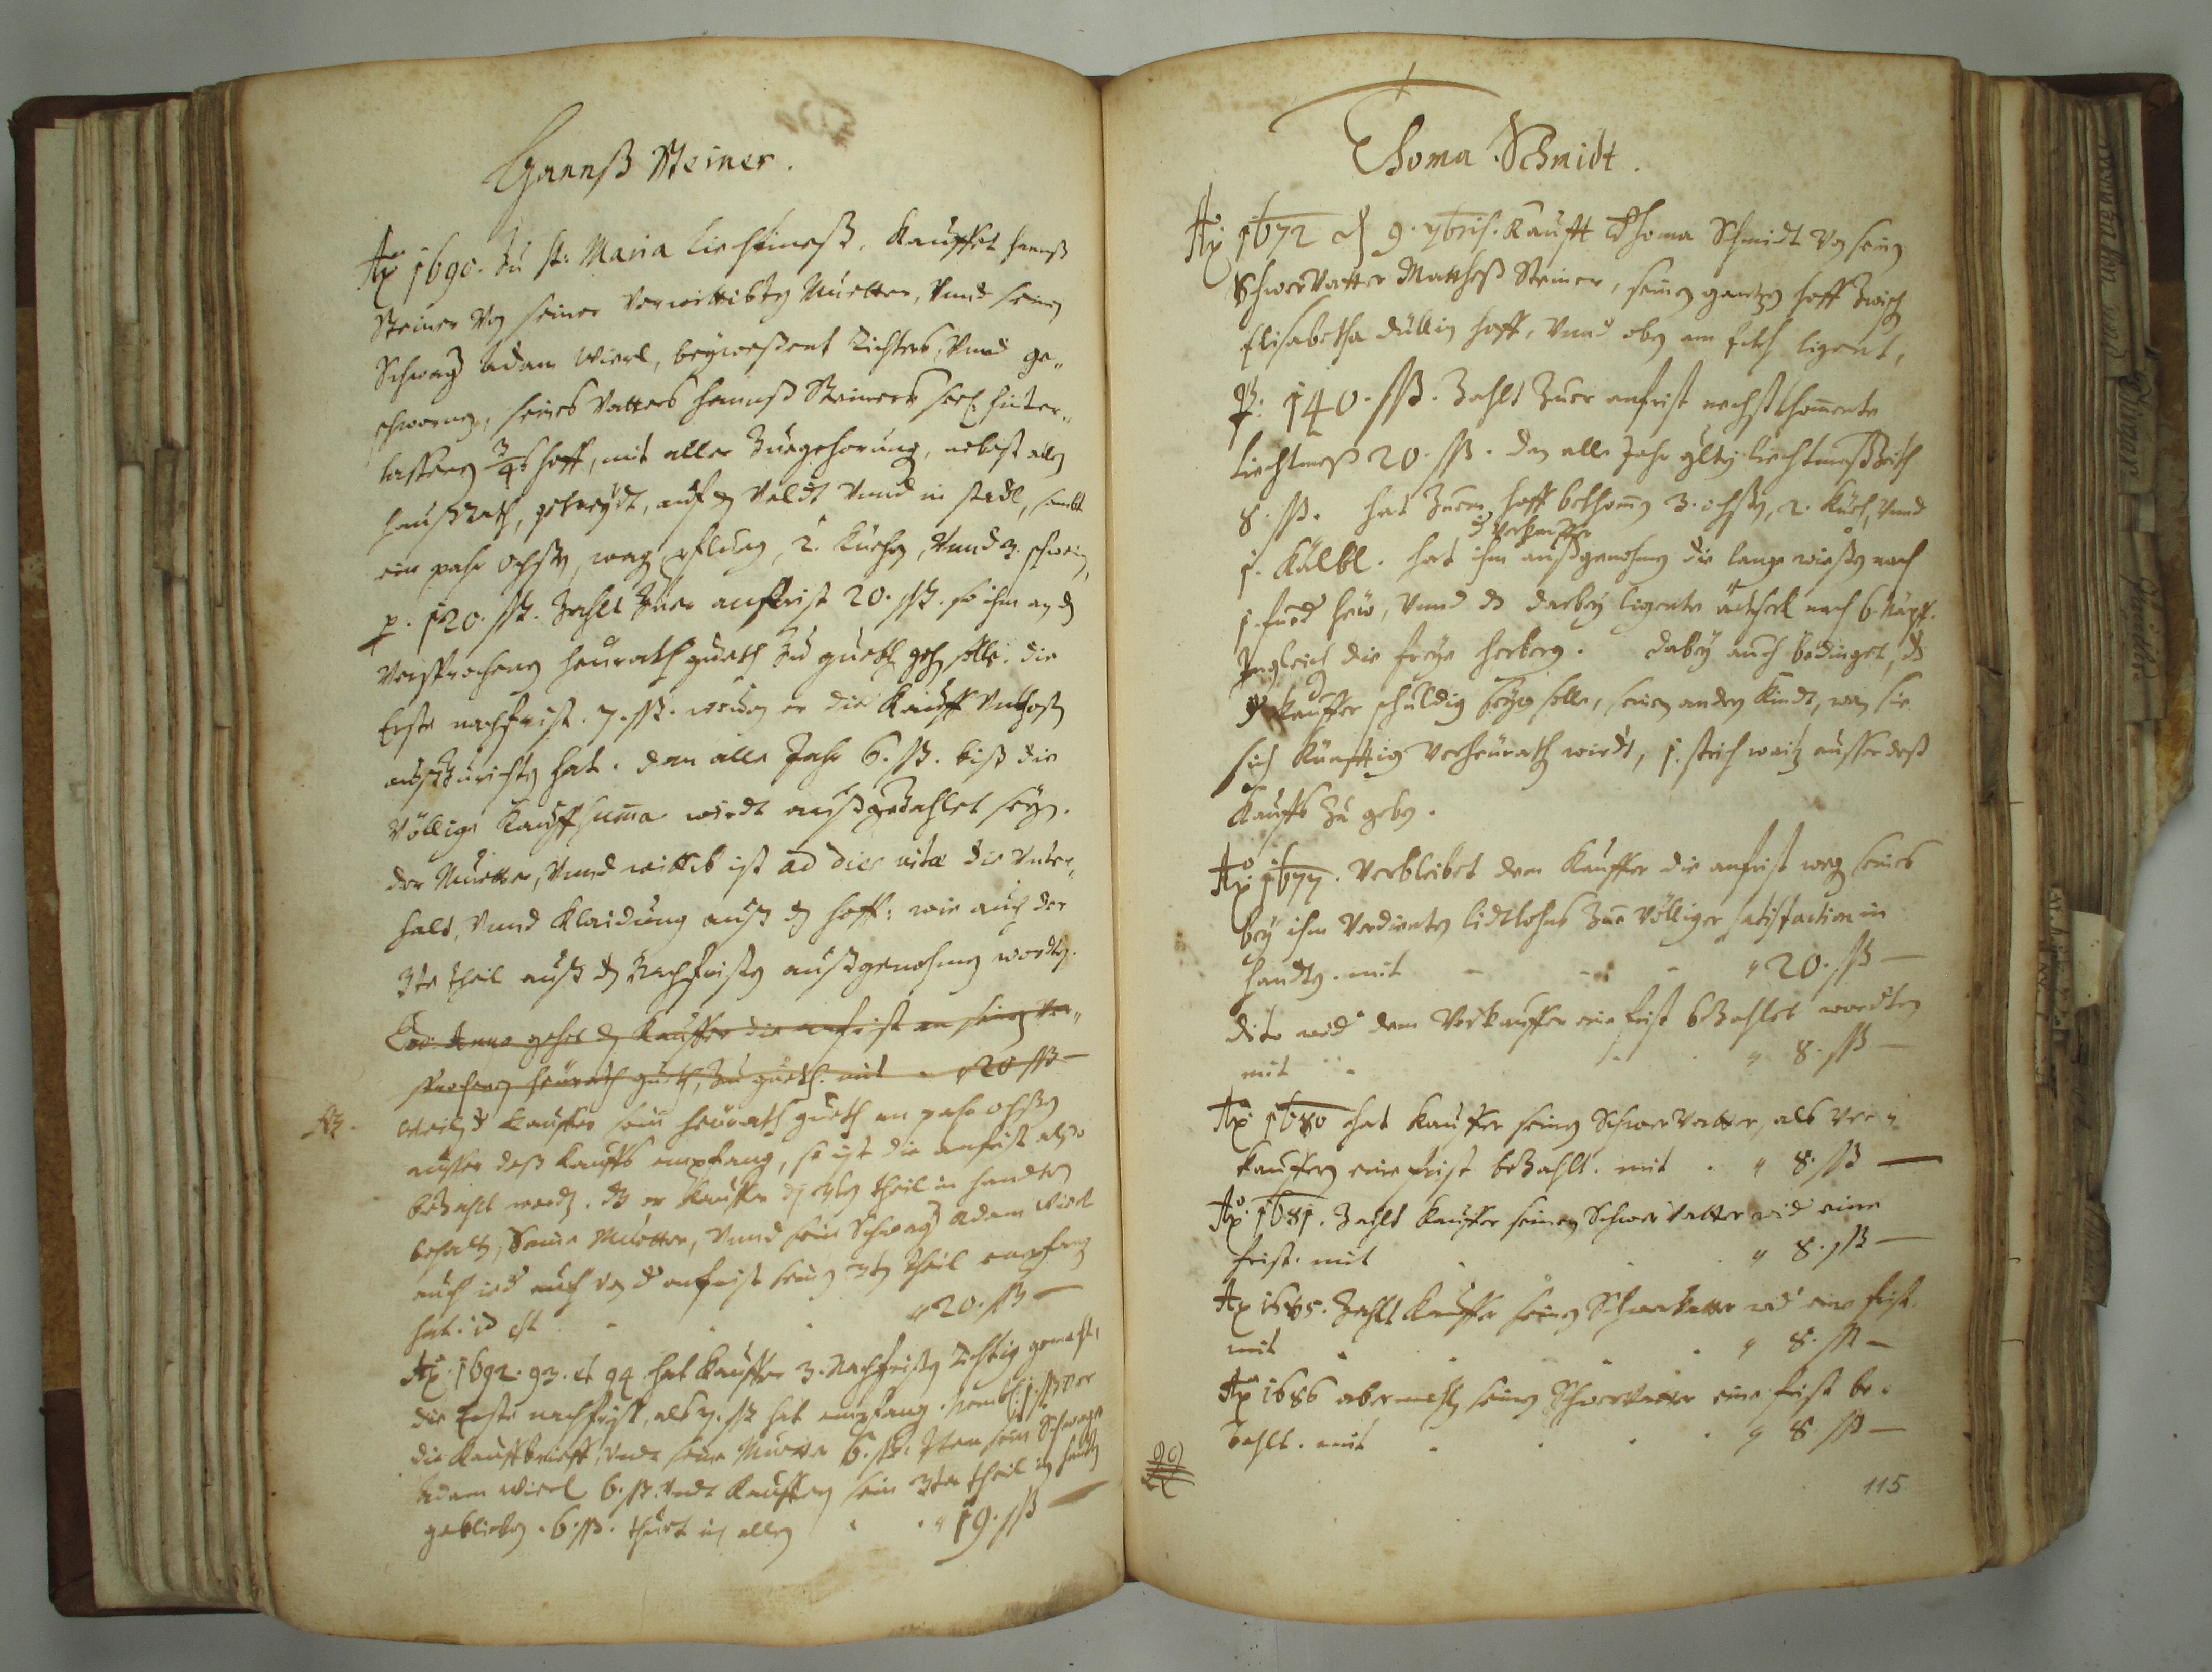 Hannß Steiner.
Ao 1690. Zu st: Maria Liechtmeß, Kauffet hannß
Steiner von seiner verwittibten Muetter, Vnnd seinen
Schwager Adam Wierl, beyweßent Richters, Vnnd ge„
schwornen, seines Vatters hannß Steiners seel: hinter„
lassenen 3/4 hoff, mit aller Zuegehorung, nebst allen
haußRath, getraydt, auf den Veldt Vnnd in stadl, sambt
ein pahr ochsen, wagen, pflueg, 2. Küehe, Vnnd 3. schwein,
p. 120. ßß. Zahlt Zuer anfrist 20. ßß. so ihm an den
Versprochenen heurath gueth Zu gueth gehen solle. die
Erste nachfrist. 7. ßß. weilen er die Kauff Vnkhosten
auß Zurichten hat. dan alle Jahr 6. ßß. biß die
Völlige Kauff suma wirdt außgeZahlet seyn.
der Muetter, Vnnd wittib ist ad dies vitæ die Vnter„
halt, Vnnd Klaidung auß den hoff: wie auch der
3te theil auß den Nachfristen außgenohmen worden.
Eod: Anno gehet den Kauffer die anfrist an seinen ver„
sprochenen heurath gueth, Zu gueth. mit „ 20 ßß —
Weilen der Kauffer sein heurath gueth ein pahr ochsen
ausser deß Kauffs empfangen, so ist die anfrist also
beZahlt worden. dß er Kauffer den 3ten theil in handten
behalten, Seine Muetter, Vnnd sein Schwager Adam Wierl
auch ieder auch von der anfrist seinen 3ten theil empfangen
hat. id est „ 20. ßß —
Ao. 1692. 93. et 94. hat Kauffer 3. Nachfristen Richtig gemacht,
die Erste nachfrist, als 7. ßß hat empfangen. Nembl: 1. ßß vor
die Kauffbrieff, Vndt seine Muetter 6. ßß. Item sein Schwager
Adam Wierl 6. ßß. Vndt Kauffern sein 3ter theil in handen
geblieben. 6. ßß. thuet in allen „ 19. ßß —
Thoma Schmidt.
Ao 1672 den 9. 7bris. Kaufft Thoma Schmidt von seinen
Schwer Vatter Mattheß Steiner, seinen gantzen hoff Zwischen
Elisabetha düllin hoff, Vnnd oben am Eckh ligent,
p: 140. ßß. Zahlt Zuer anfrist nechstkhommente
Liechtmeß 20. ßß. dan alle Jahr Liechtmeß Zeith
8. ßß. hat Zuem hoff bekhomen 3. ochsen, 2. Küeh, Vnnd
der Verkauffer
1. Kälbl. hat ihm außgenohmen die lange wießen nach
1. fued hew, Vnnd dß darbey ligente nach 6. Näpf.
Ingleich die freye herberg. dabey auch bedinget, dß
Kauffer schuldig seyn solle, seinen andern Kindt, wan sie
sich Künfftig verheurathen wirdt, 1. strich waitz ausser deß
Kauffs Zu geben.
Ao: 1677. Verbleibet dem Kauffer die anfrist wegen seines
bey ihm Verdienten lidtlohns Zue Völliger satisfaction in
handten. mit „ 20. ßß —
dito wird dem Verkauffer eine frist beZahlet wordten
mit „ 8. ßß —
Ao: 1680 hat Kauffer seinen Schwer Vatter, als Ver„
kauffern eine frist beZahlt. mit „ 8. ßß —
Ao: 1681. Zahlt Kauffer seinen Schwer Vatter wid eine
frist. mit „ 8. ßß —
Ao 1685. Zahlt Kauffer seinen Schwervatter wid eine frist
mit „ 8. ßß —
Ao 1686 abermahlen seinen Schwervatter eine frist be„
Zahlt. mit „ 8 ßß —
115